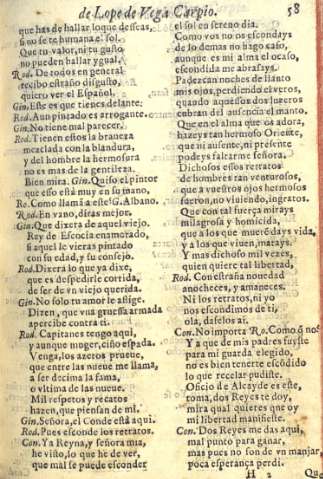 de Lope de Vega Carpio. 58
que has de hallar lo que desseas,
si no se te humana el sol.
Que tu valor, ni tu gusto
no pueden hallar ygual.
Rod. De todos en general
recibo estraño disgusto,
quiero ver el Español.
Gin. Este es que tienes delante.
Rod. Aun pintado es arrogante.
Gin. No tiene mal parecer.
Rod. Tienen essos la braueza
mezclada con la blandura,
y del hombre la hermosura
no es mas de la gentileza.
Bien mira. Gin. Quiso el pintor
que esso está muy en su mano,
Ro. Como llamã a esse? G. Albano.
Rod. En vano, diras mejor.
Gin. Que dixera de aquel viejo
Rey de Escocia enamorado,
si aquel le vieras pintado
con su edad, y su consejo.
Rod. Dixera lo que ya dixe,
que es despedirle corrida,
de ser de vn viejo querida.
Gin. No solo tu amor le aflige.
Dizen, que vna gruessa armada
apercibe contra ti.
Rod. Capitanes tengo aqui,
y aunque muger, ciño espada.
Venga, los azeros prueue,
que entre las nueue me llama,
a ser dezima la fama,
o vltima de las nueue.
Mil respetos y recatos
hazen, que piensan de mi.
Gin. Señora, el Conde està aqui.
Rod. Pues esconde los retratos.
Con. Ya Reyna, y señora mia,
he visto, lo que he de ver,
que mal se puede esconder
el sol en sereno dia.
Como vos no os escondays
de lo demas no hago caso,
aunque es mi alma el ocaso,
escondida me abrasays.
Padezcan noches de llanto
mis ojos, perdiendo el veros
quando aquessos dos luzeros
cubran del ausencia el manto.
Que en el alma que os adora,
hazeys tan hermoso Oriente,
que ni ausente, ni presente
podeys falcarme señora.
Dichosos essos retratos
de hombres tan venturosos,
que a vuestros ojos hermosos
fueron, no viuiendo, ingratos.
Que con tal fuerça mirays
milagrosa y homicida,
que a los que muerẽ days vida,
y a los que viuen, matays.
Y mas dichoso mil vezes,
quien quiere tal libertad,
Rod. Con estraña nouedad
anocheces, y amaneces.
Ni los retratos, ni yo
nos escondimos de ti,
ola, dafelos ai.
Con. No importa Ro. Como q̃ no?
Ya que de mis padres fuyste
para mi guarda elegido,
no es bien tenerte escõdido
lo que recelar pudiste.
Oficio de Alcayde es este,
toma, dos Reyes te doy,
mira qual quieres que oy
mi libertad manifieste.
Con. Dos Reyes me das aqui,
mal punto para ganar,
mas pues no son de vn manjar
poca esperança perdi.
H 2 Que